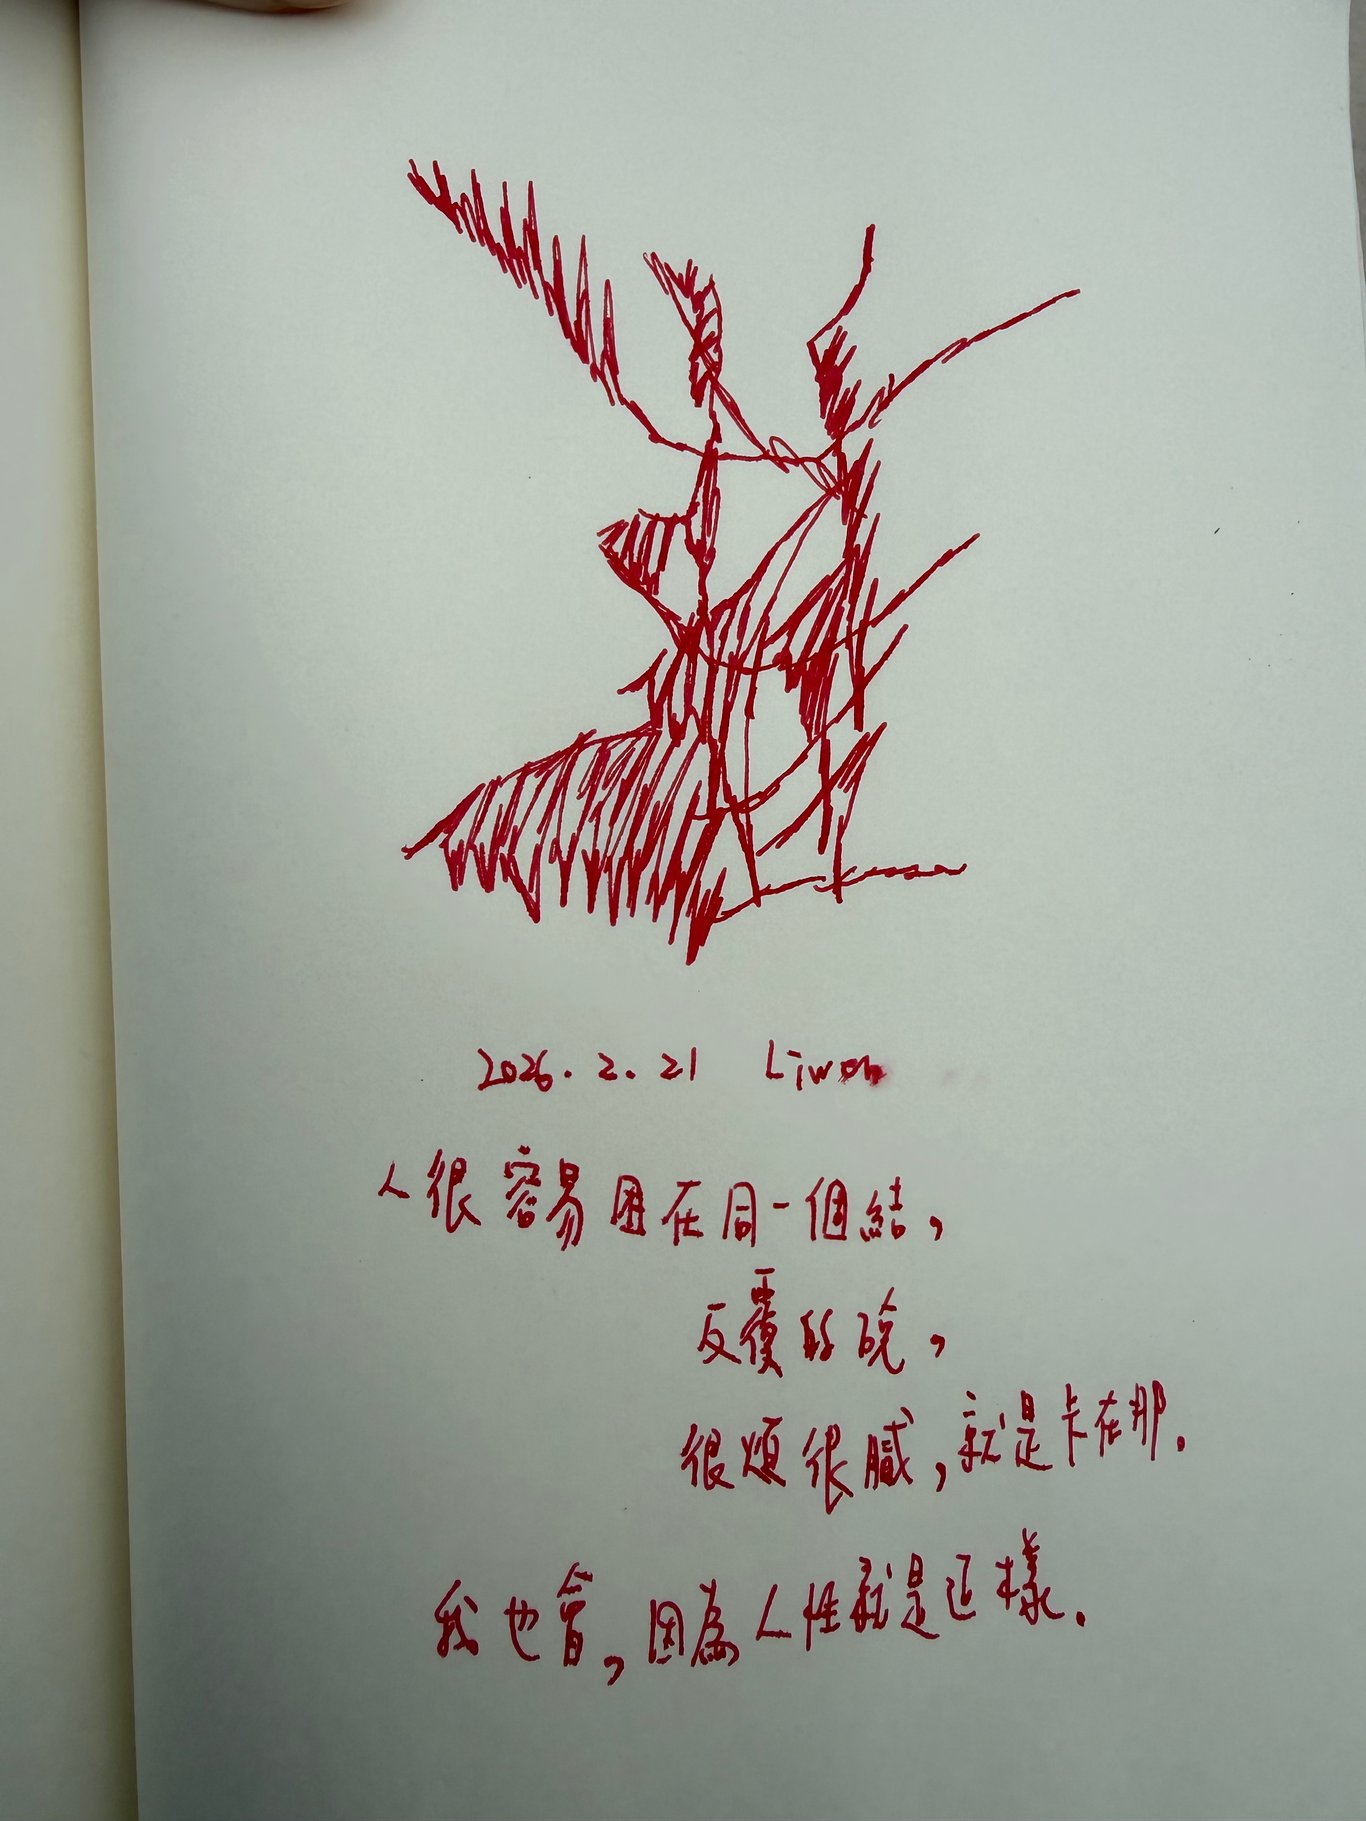 2026.2.21 Liwen
人很容易困在同一個結，
反覆的說，
很煩很膩，就是卡在那.
我也會，因為人性就是這樣.